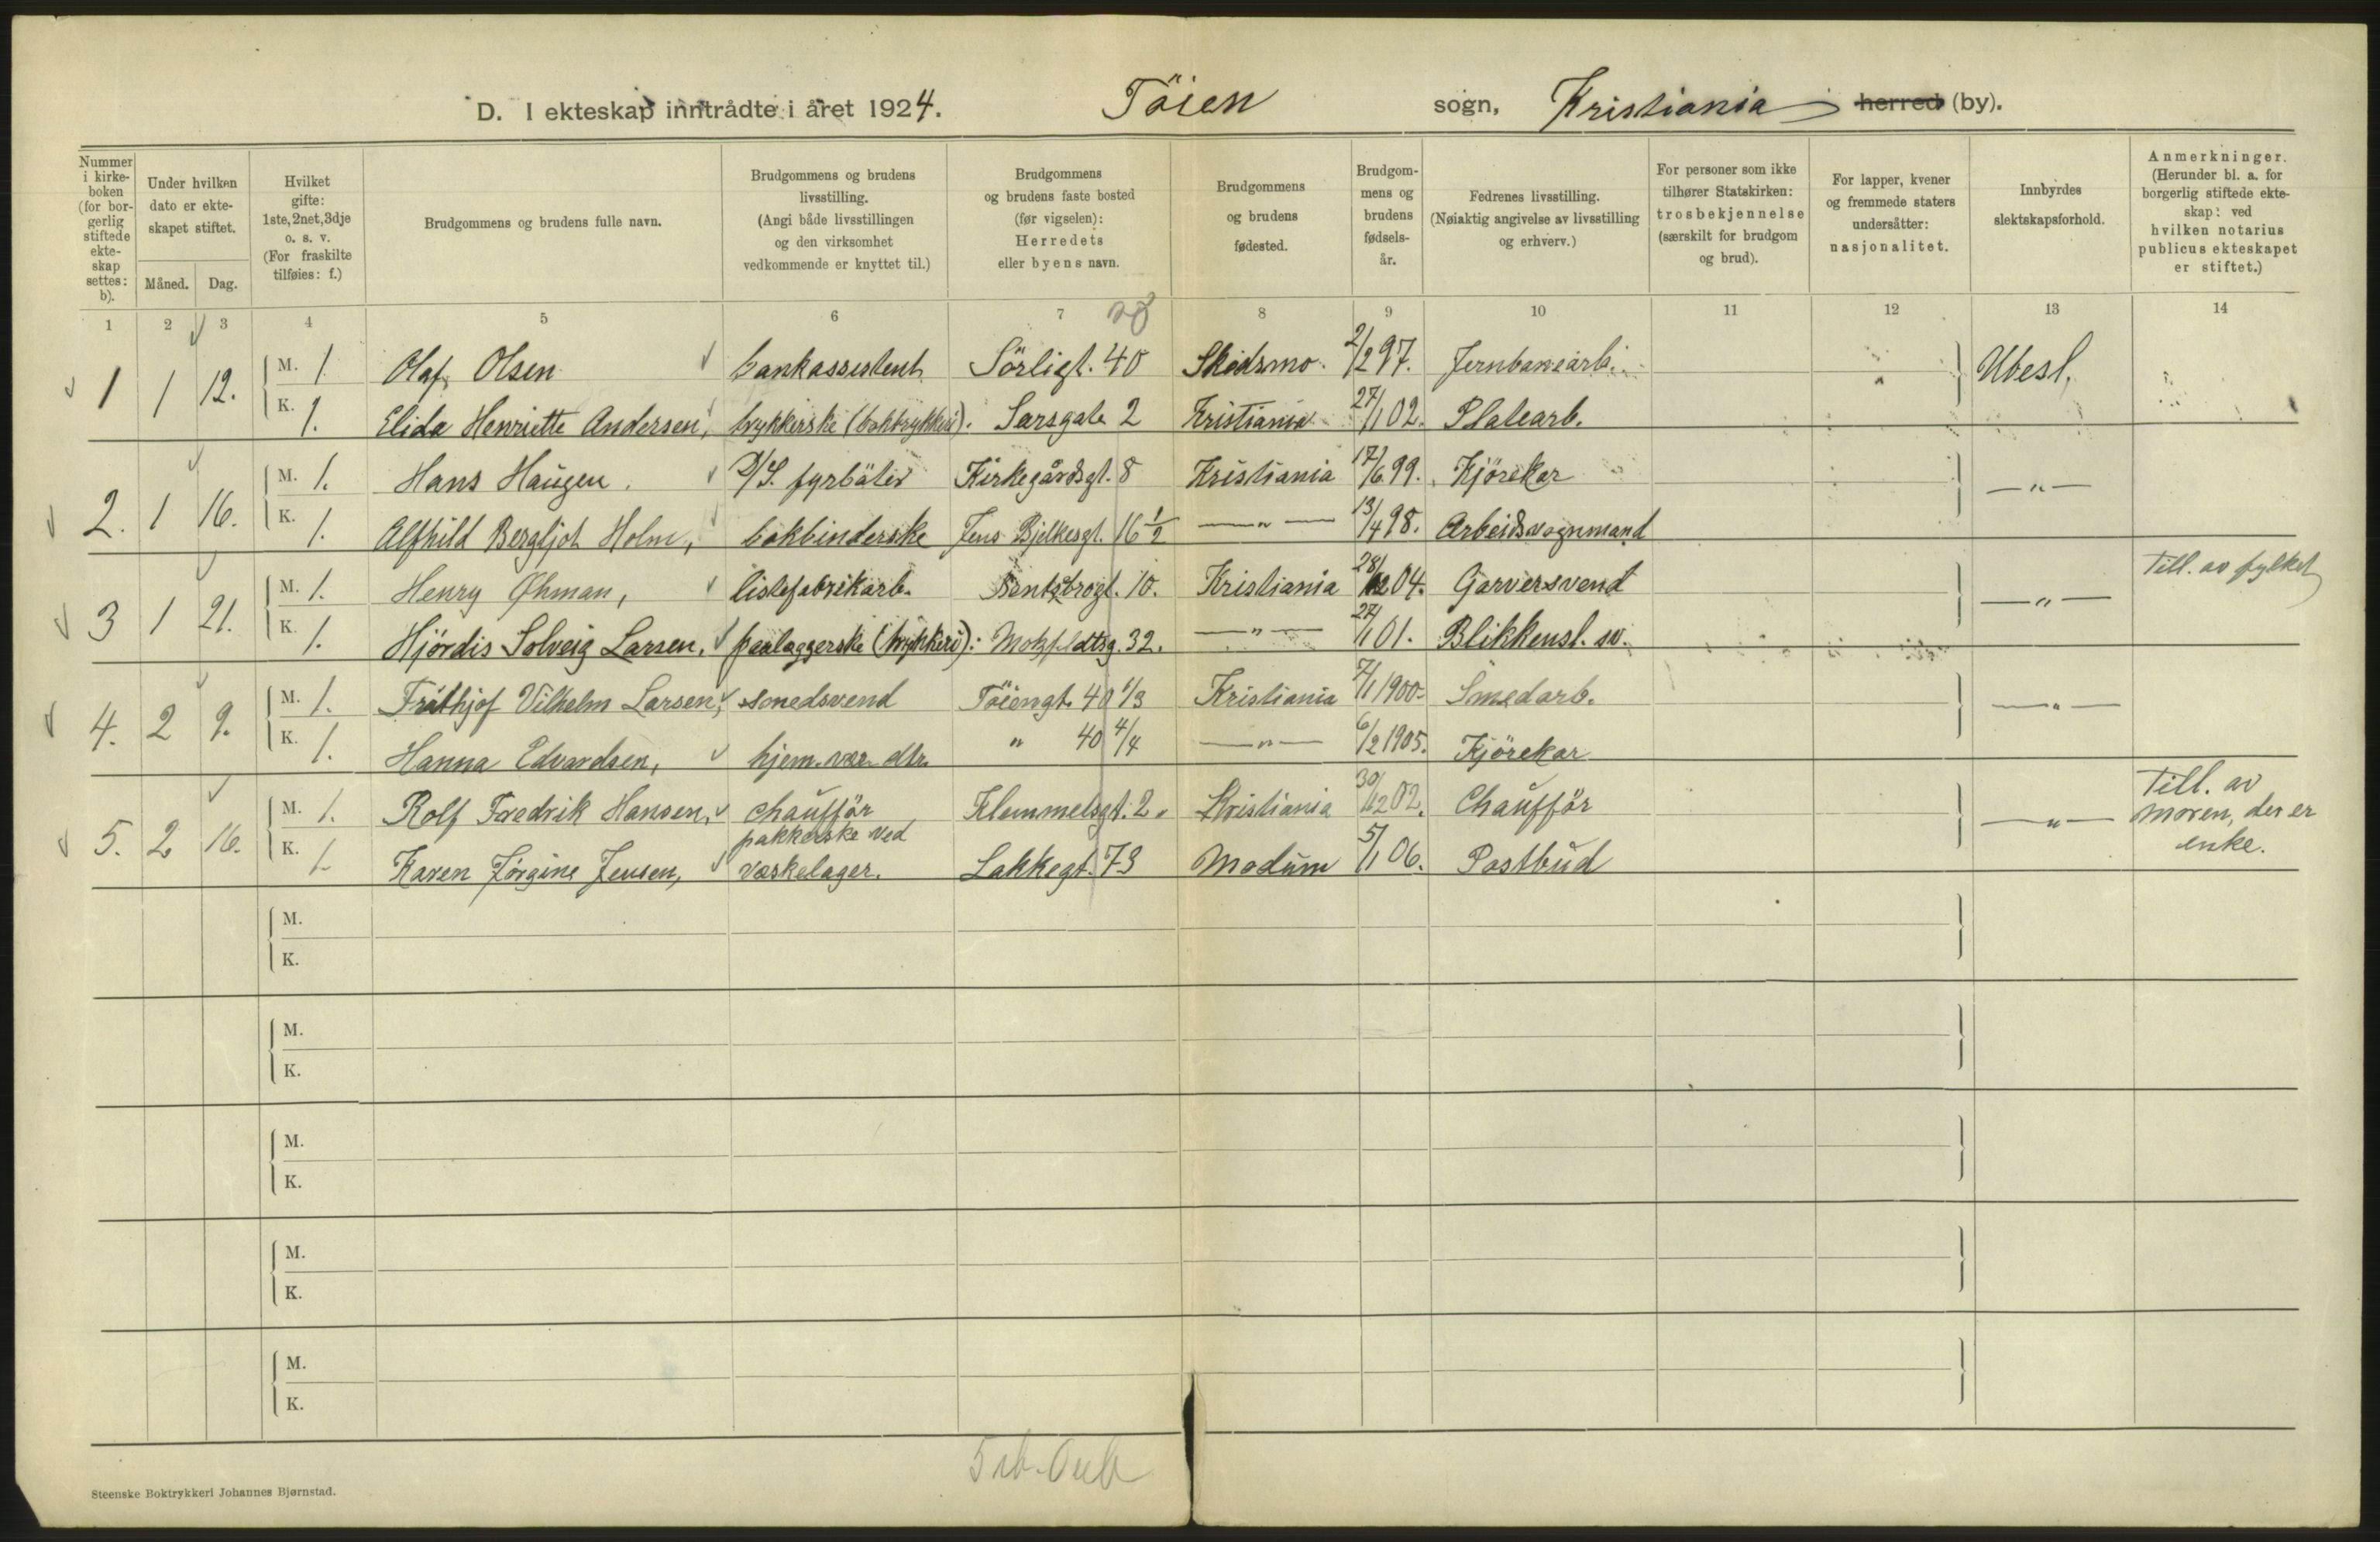 D. I ekteskap inntrådte i året 1924. Töien sogn, Kristiania herred (by).
Nummer i kirkeboken (for borgerlig stiftede ekteskap settes: b).
Under hvilken dato er ekteskapet stiftet.
Måned. Dag.
Hvilket gifte: 1ste, 2net, 3dje o. s. v. (For fraskilte tilføies: f.)
Brudgommens og brudens fulle navn.
Brudgommens og brudens livsstilling. (Angi både livsstillingen og den virksomhet vedkommende er knyttet til.)
Brudgommens og brudens faste bosted (før vigselen): Herredets eller byens navn.
Brudgommens og brudens fødested.
Brudgommens og brudens fødselsår.
Fedrenes livsstilling. (Nøiaktig angivelse av livsstilling og erhverv.)
For personer som ikke tilhører Statskirken: trosbekjennelse (særskilt for brudgom og brud).
For lapper, kvener og fremmede staters undersåtter: nasjonalitet.
Innbyrdes slektskapsforhold.
Anmerkninger. (Herunder bl. a. for borgerlig stiftede ekteskap: ved hvilken notarius publicus ekteskapet er stiftet.)
1 2 3 4 5 6 7 8 9 10 11 12 13 14
1 1 12. M. 1 Olaf Olsen bankassistent Sörligt. 40 Skedsmo. 2/2 97. Jernbanearb. Ubesl.
K. 1. Elida Henriette Andersen, trykkerske (boktrykkeri). Sarsgate 2 Kristiania 27/1 02. Platearb.
2. 1 16. M. 1. Hans Haugen D/S. fyrböter Kirkegårdsgt. 8 Kristiania 17/6 99. Kjörekar —"—
K. 1. Alfhild Bergljot Holm, bokbinderske Jens Bjelkesgt. 16 1/2 —"— 13/4 98. Arbeidsvognmand
3 1 21. M. 1. Henry Öhman, listefabrikarb. Bentsebrogt. 10. Kristiania 28/12 04. Garversvend —"— Till. av fylket
K. 1. Hjördis Solveig Larsen, paalæggerske (trykkeri). Motzfeldtsg. 32. —"— 27/1 01. Blikkensl. sv.
4. 2 9. M. 1. Frithjof Vilhelm Larsen, smedsvend Töiengt. 40 1/3 Kristiania 7/1 1900. Smedarb. —"—
K. 1. Hanna Edvardsen, hjem. vær. dtr. " 40 4/4 —"— 6/2 1905. Kjörekar
5. 2 16. M. 1. Rolf Fredrik Hansen, chaufför Klemmetsgt. 2. Kristiania 30/12 02. Chaufför —"— Till. av moren, der er enke.
K. 1. Karen Jørgine Jensen, pakkerske ved væskelager. Lakkegt. 73 Modum 5/1 06. Postbud
M.
K.
M.
K.
M.
K.
M.
K.
M.
K.
Steenske Boktrykkeri Johannes Bjørnstad.